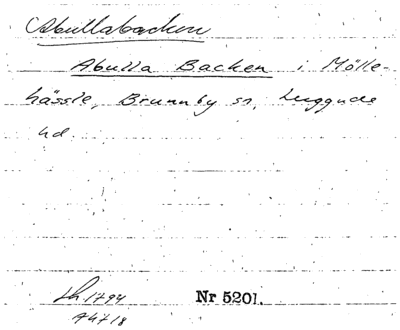 Abullabacken
Abulla Backen i Mölle-
hässle, Brunnby sn, Luggude
hd.
Lh 1794 Nr 5201.
Ah 718